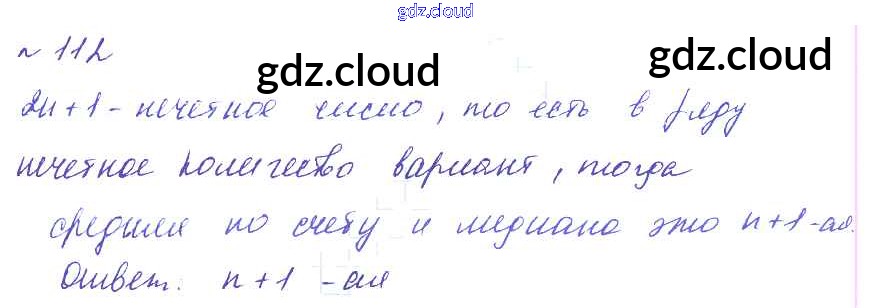 gdz.cloud
№ 112
gdz.cloud gdz.cloud
2n+1 - нечетное число, то есть в ряду
нечетное количество вариант, тогда
средняя по счету и медиана это n+1-ая.
Ответ: n+1 -ая